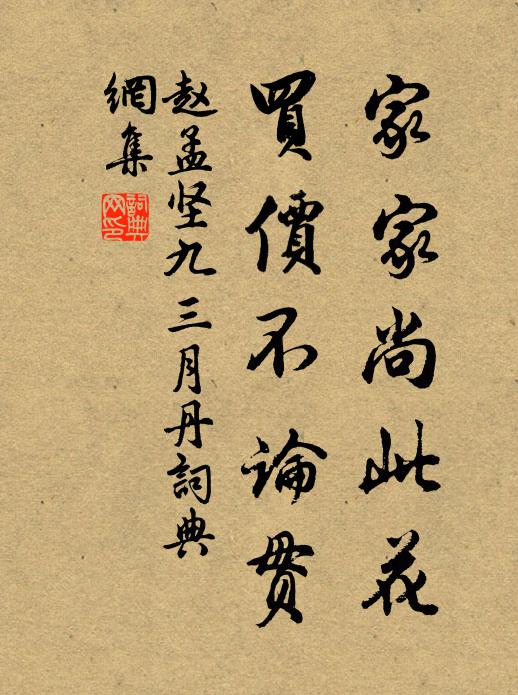 家家尚此花
買價不論贯
赵孟坚九三月丹詞典
網集
詞典
网印